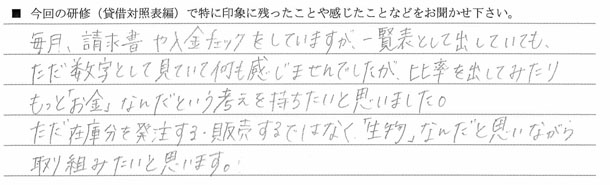 ■ 今回の研修（貸借対照表編）で特に印象に残ったことや感じたことなどをお聞かせ下さい。
毎月、請求書や入金チェックをしていますが、一覧表として出していても、
ただ数字として見ていて何も感じませんでしたが、比率を出してみたり
もっと「お金」なんだという考えを持ちたいと思いました。
ただ在庫分を発注する・販売するではなく、「生物」なんだと思いながら
取り組みたいと思います。